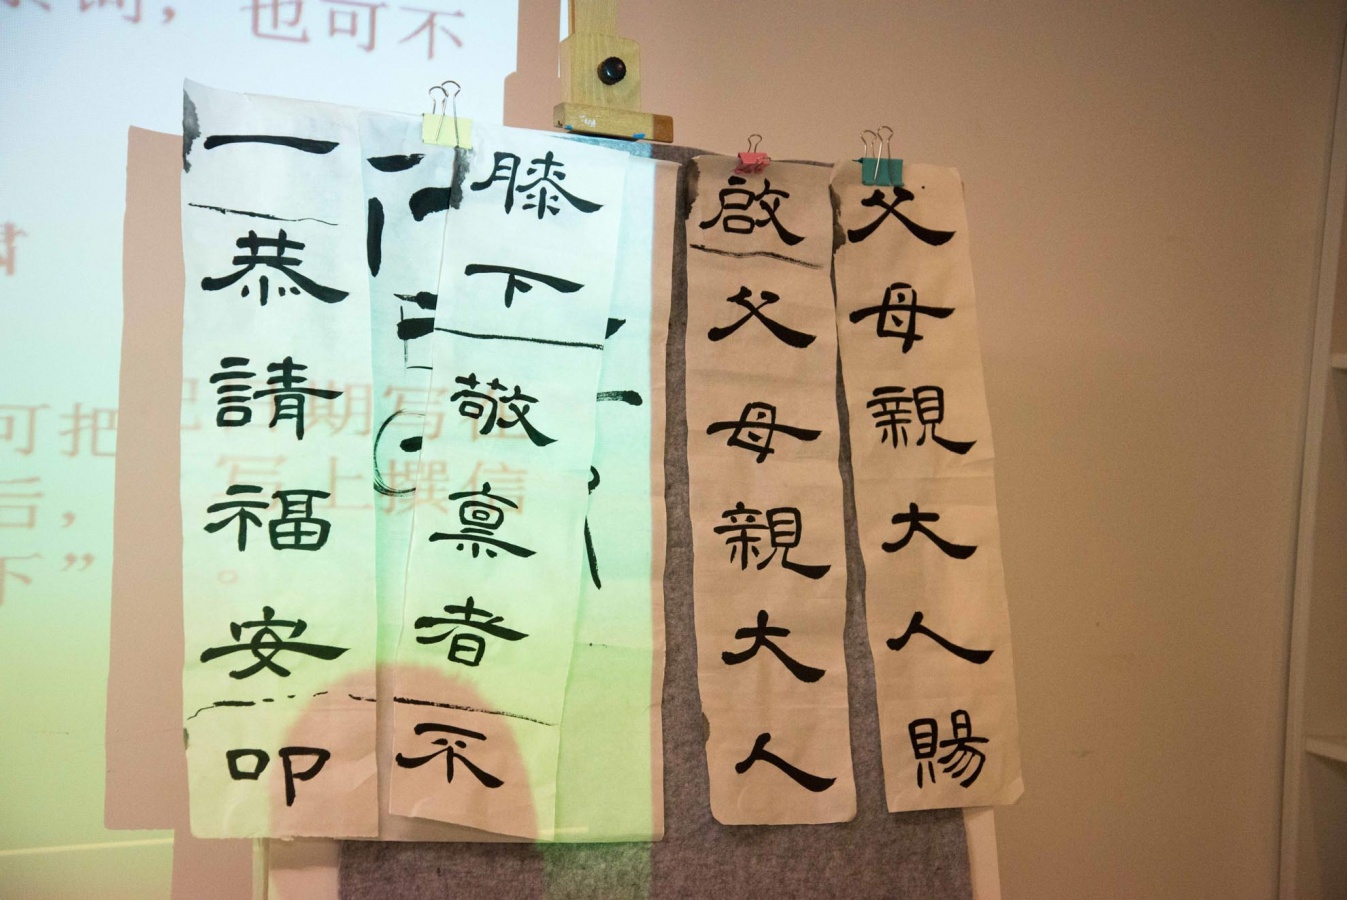 父母親大人賜
啟父母親大人
膝下敬禀者不
一恭請福安叩
，也可不
可把
期写在
写上撰信
后，
下”
。